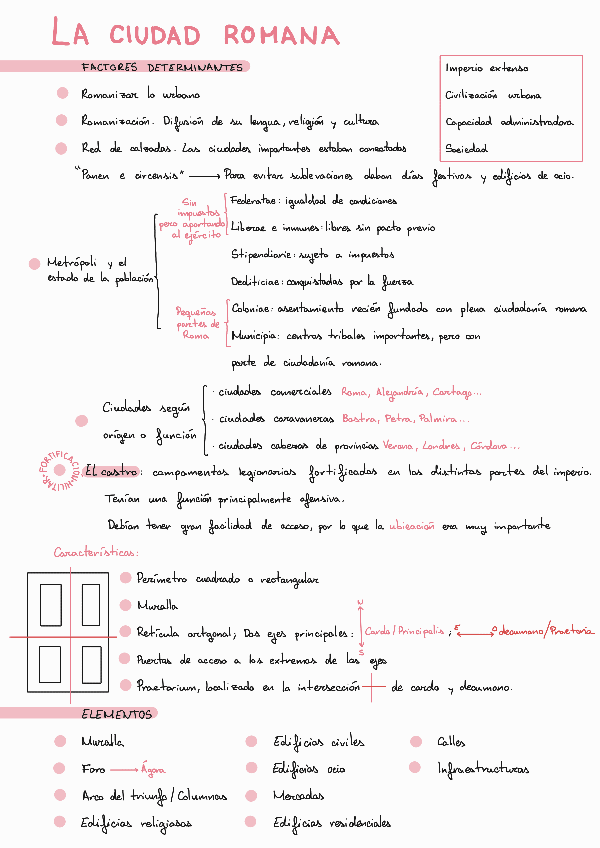 LA CIUDAD ROMANA
FACTORES DETERMINANTES
Imperio extenso
Civilización urbana
Capacidad administradora
Sociedad
Romanizar lo urbano
Romanización. Difusión de su lengua, religión y cultura
Red de calzadas. Las ciudades importantes estaban conectadas
"Panen e circensis" → Para evitar sublevaciones daban días festivos y edificios de ocio.
Metrópoli y el
estado de la población
Sin
impuestos
pero aportando
al ejército
Federatae: igualdad de condiciones
Liberae e inmunes: libres sin pacto previo
Stipendiarie: sujeto a impuestos
Dediticiae: conquistadas por la fuerza
Pequeñas
partes de
Roma
Coloniae: asentamiento recién fundado con plena ciudadanía romana
Municipia: centros tribales importantes, pero con
parte de ciudadanía romana.
Ciudades según
origen o función
· ciudades comerciales Roma, Alejandría, Cartago...
· ciudades caravaneras Bostra, Petra, Palmira...
· ciudades cabezas de provincias Verona, Londres, Córdova...
FORTIFICACIÓN MILITAR
El castro: campamentos legionarios fortificados en las distintas partes del imperio.
Tenían una función principalmente ofensiva.
Debían tener gran facilidad de acceso, por lo que la ubicación era muy importante
Características:
Perímetro cuadrado o rectangular
Muralla
Retícula ortgonal; Dos ejes principales: N S Cardo/Principalis; E O decumano/Praetoria
Puertas de acceso a los extremos de los ejes
Praetorium, localizado en la intersección de cardo y decumano.
ELEMENTOS
Muralla
Foro → Ágora
Arco del triunfo/Columnas
Edificios religiosos
Edificios civiles
Edificios ocio
Mercados
Edificios residenciales
Calles
Infraestructuras